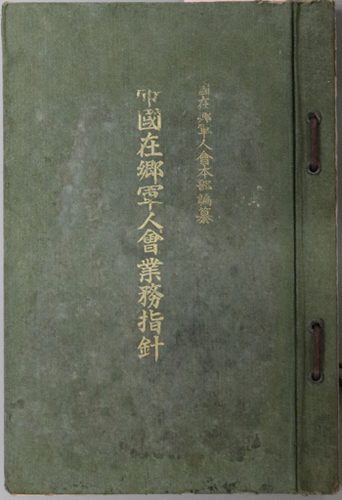 國在郷軍人會本部編纂
帝國在郷軍人會業務指針